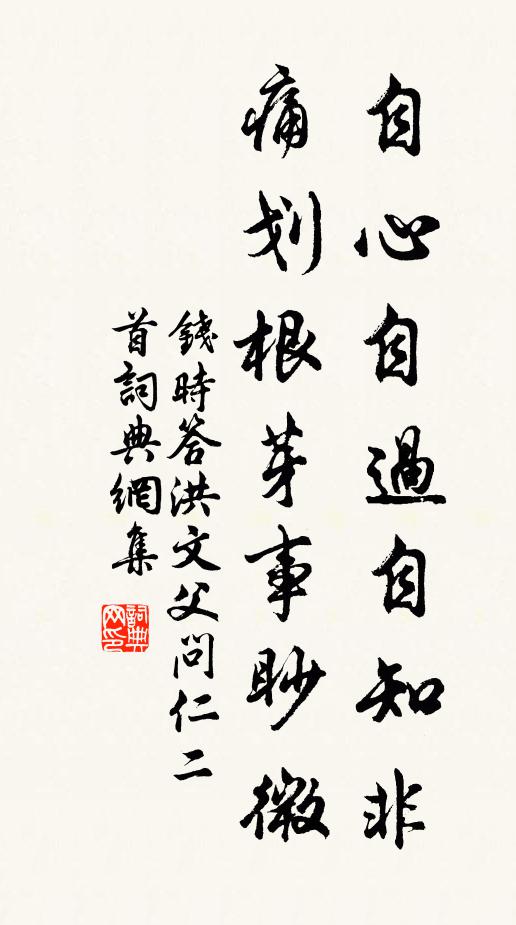 自心自過自知非
痛划根芽事眇微
錢時答洪文父問仁二
首詞典網集
詞典
网印